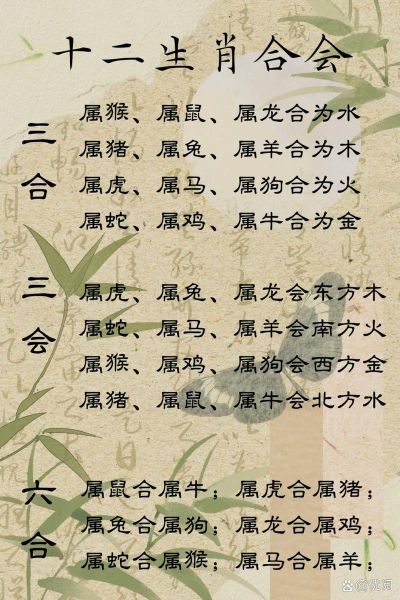 十二生肖合会
三合
属猴、属鼠、属龙合为水
属猪、属兔、属羊合为木
属虎、属马、属狗合为火
属蛇、属鸡、属牛合为金
三会
属虎、属兔、属龙会东方木
属蛇、属马、属羊会南方火
属猴、属鸡、属狗会西方金
属猪、属鼠、属牛会北方水
六合
属鼠合属牛；属虎合属猪；
属兔合属狗；属龙合属鸡；
属蛇合属猴；属马合属羊；